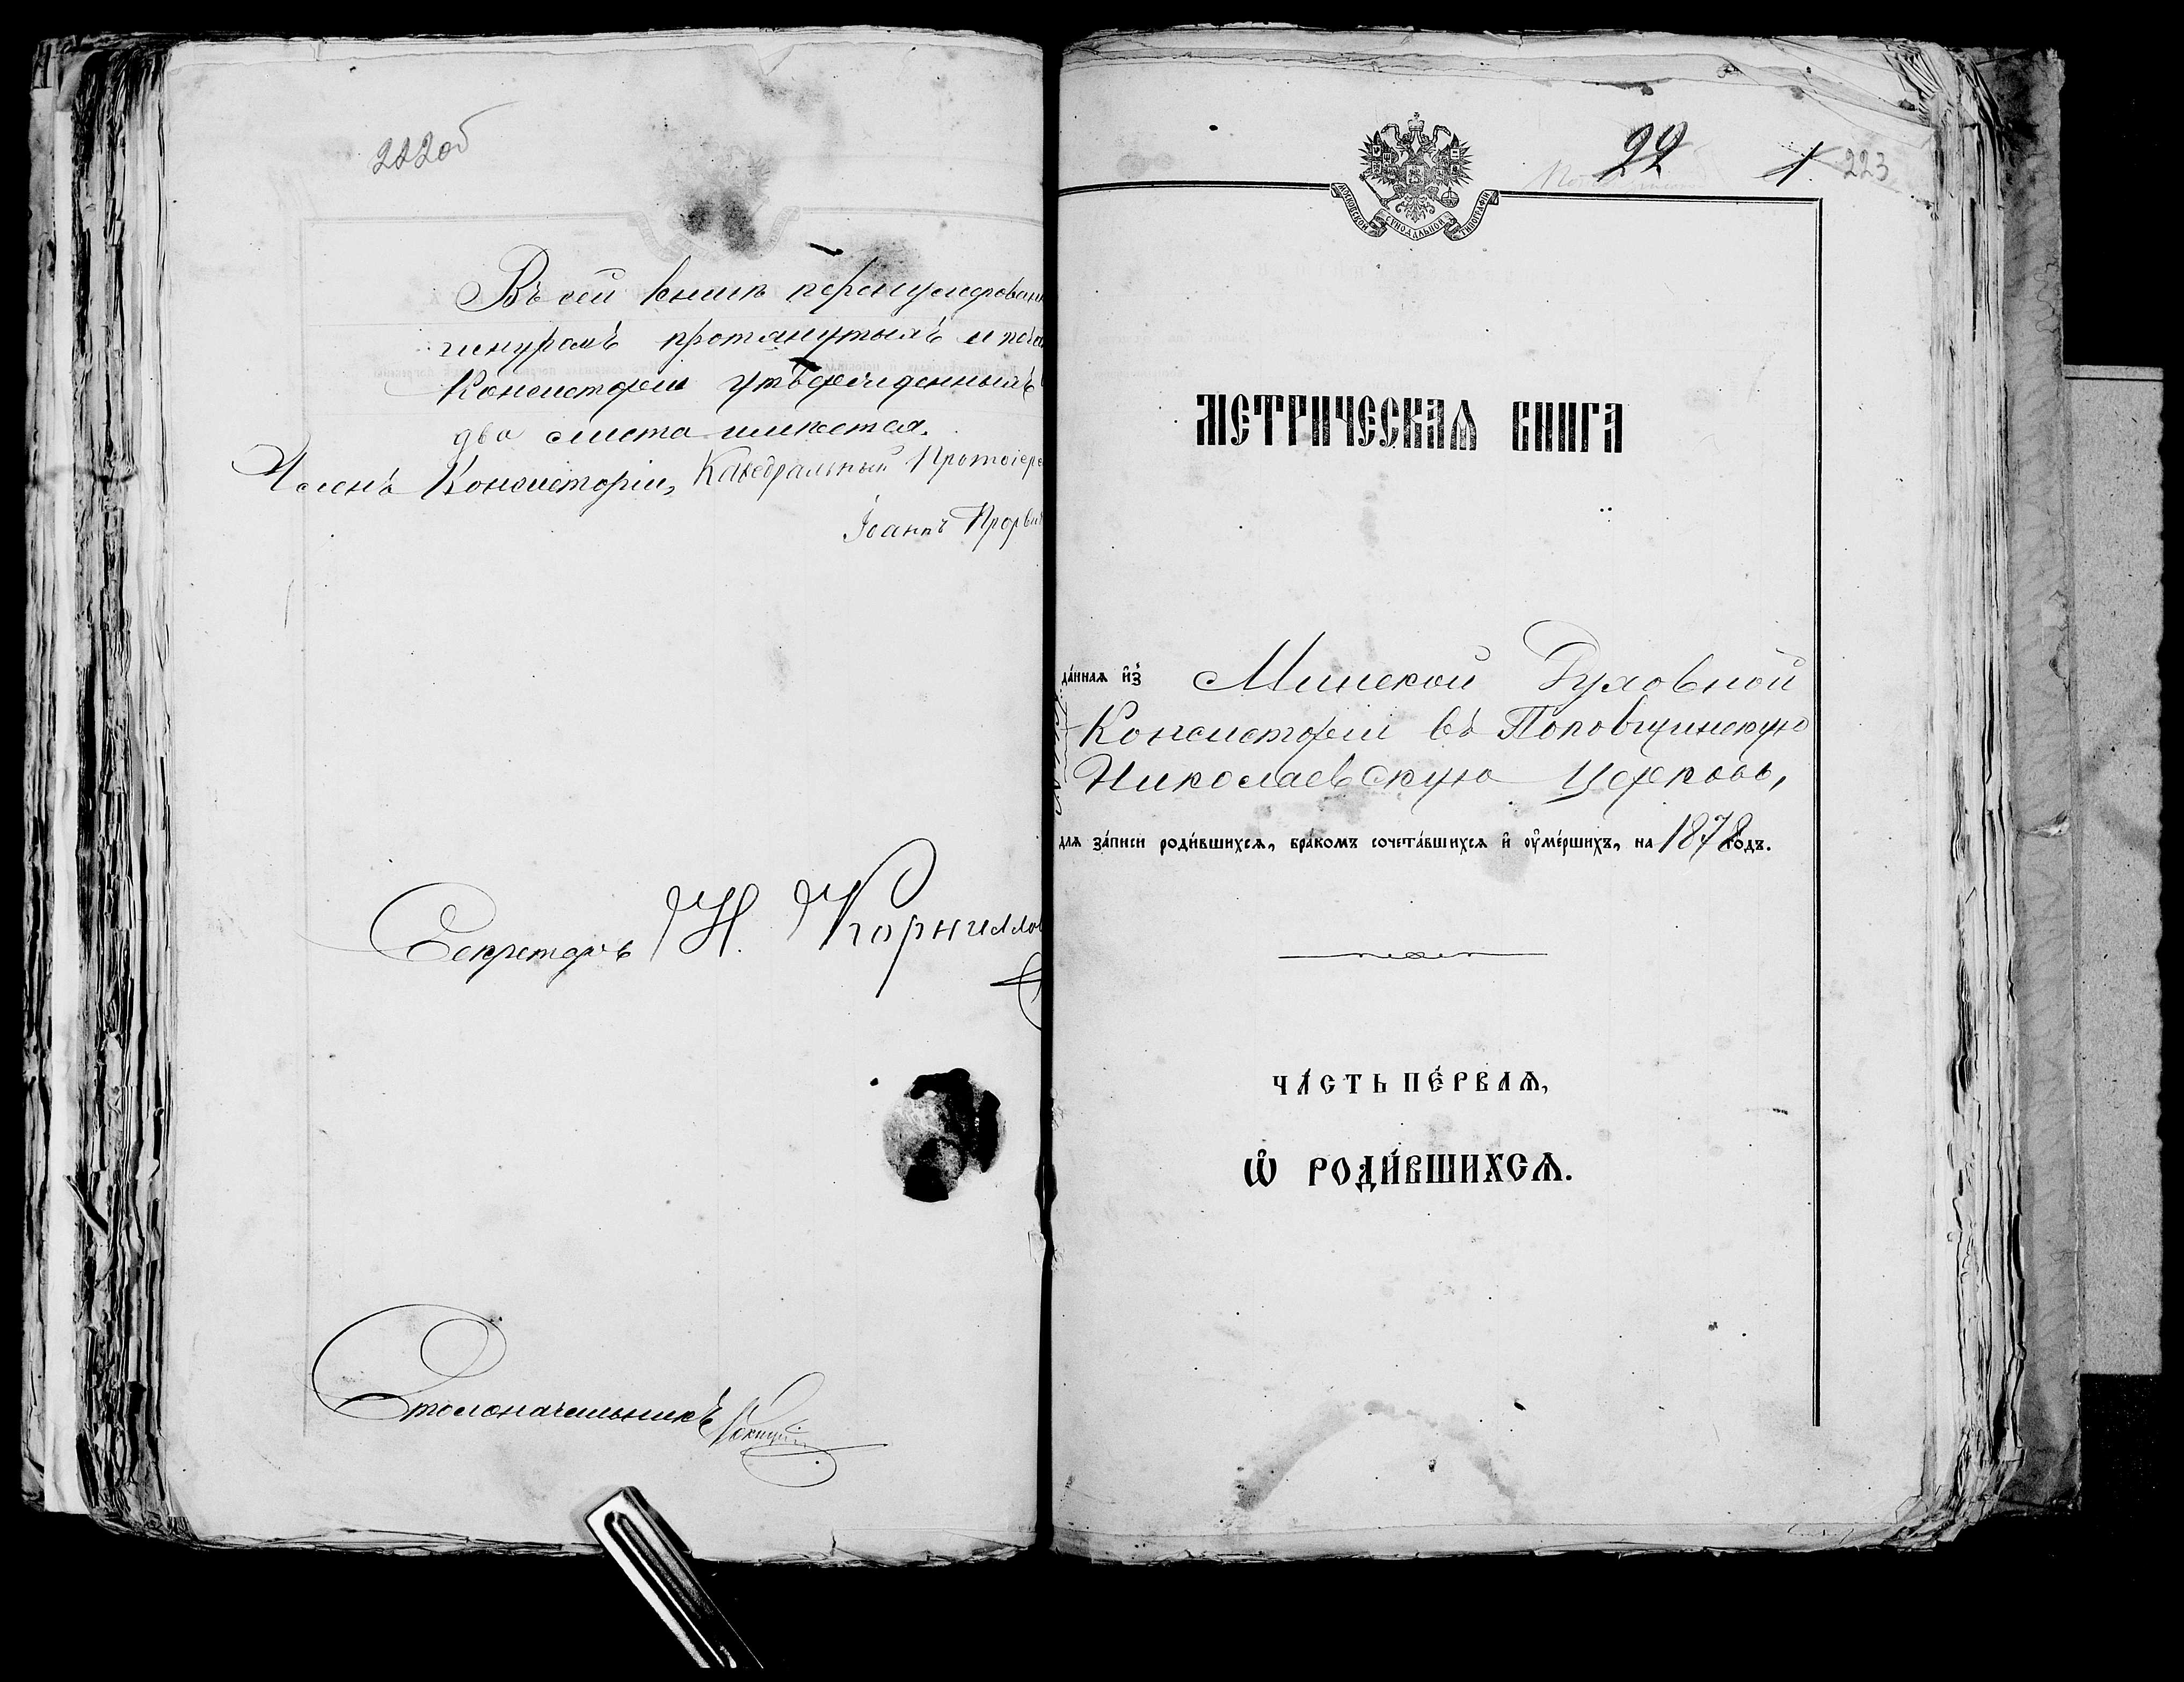 222об
Въ сей книгѣ перенумерован
шнуромъ протянутымъ и печа
Консисторіи утвержденныхъ
два листа имѣется.
Членъ Консисторіи, Каѳедральный Протоіере
Іоаннъ
Секретарь Н. Корнилов
Столоначальникъ
22 1 223
МОСКОВСКОЙ СѴНОДАЛЬНОЙ ТИПОГРАФІИ
МЕТРИЧЕСКАѦ КНИГА
да́ннаѧ и҆з̾ Минской Духовной
Консисторіи въ Поповщинскую
Николаевскую Церковь,
длѧ за́писи роди́вшихсѧ, бра́комъ сочета́вшихсѧ и҆ оу҆ме́ршихъ, на 1878 годъ.
ЧА́СТЬ ПЕ́РВАѦ,
Ѡ҆ РОДИ́ВШИХСѦ.